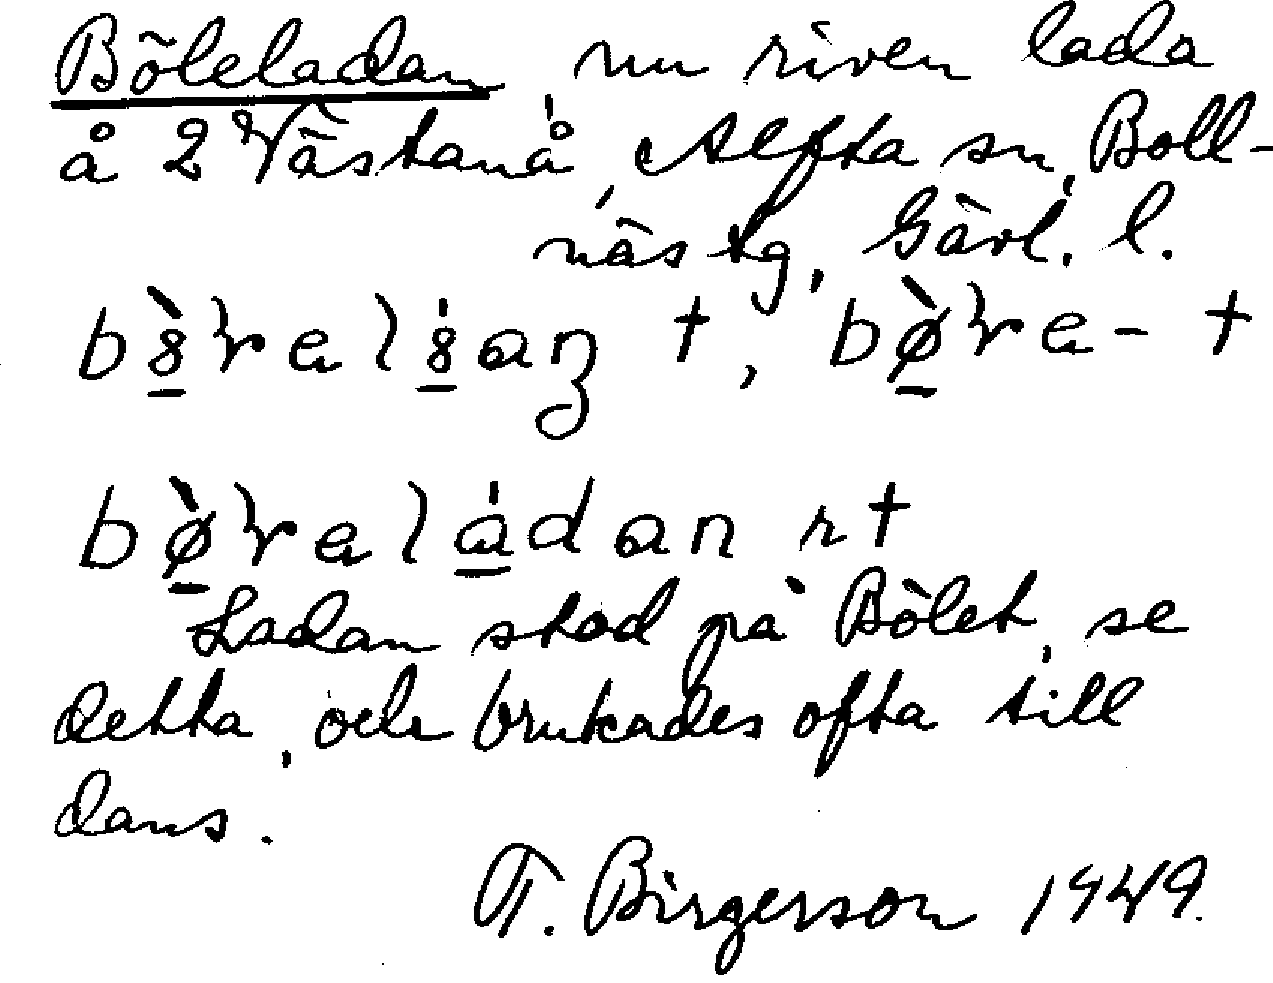 Böleladan, nu riven lada
å 2 Västanå, Alfta sn, Boll-
näs tg, Gävl. l.
Ladan stod på Bölet, se
detta, och brukades ofta till
dans.
T. Birgerson 1949.